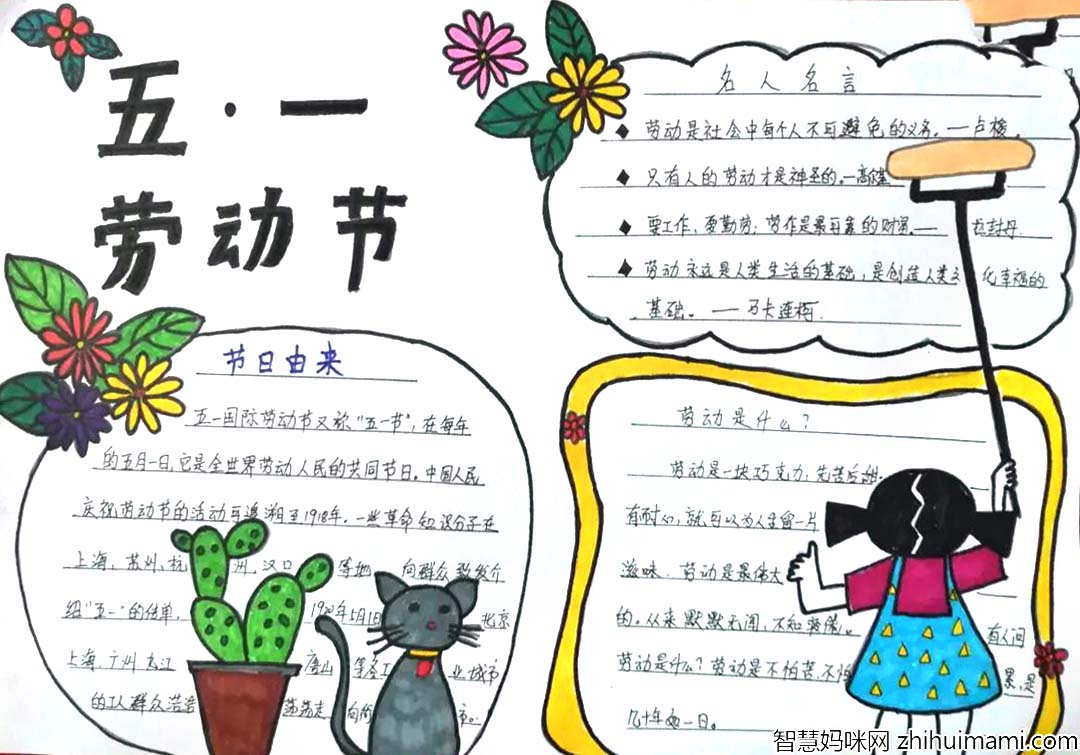 五·一
劳动节
名人名言
劳动是社会中每个人不可避免的义务。—卢梭。
只有人的劳动才是神圣的。—高
要工作,要勤劳:劳作是最可靠的财富。—
劳动永远是人类生活的基础,是创造人类文化幸福的
基础。——马卡连柯.
节日由来
五一国际劳动节又称"五一节",在每年
的五月一日,它是全世界劳动人民的共同节日。中国人民
庆祝劳动节的活动可追溯至1918年。一些革命知识分子在
上海,苏州,杭州,汉口等地向群众散发介
绍"五一"的传单.1920年5月1日北京
上海,广州九江唐山等各工业城市
的工人群众浩浩荡荡走向街市。
劳动是什么?
劳动是一块巧克力,先苦后甜.
有耐心,就可以为人生留一片
滋味.劳动是最伟大
的。从来默默无闻,不知疲倦。有人问
劳动是什么?劳动是不怕苦,不怕累,是
几十年如一日。
智慧妈咪网 zhihuimami.com